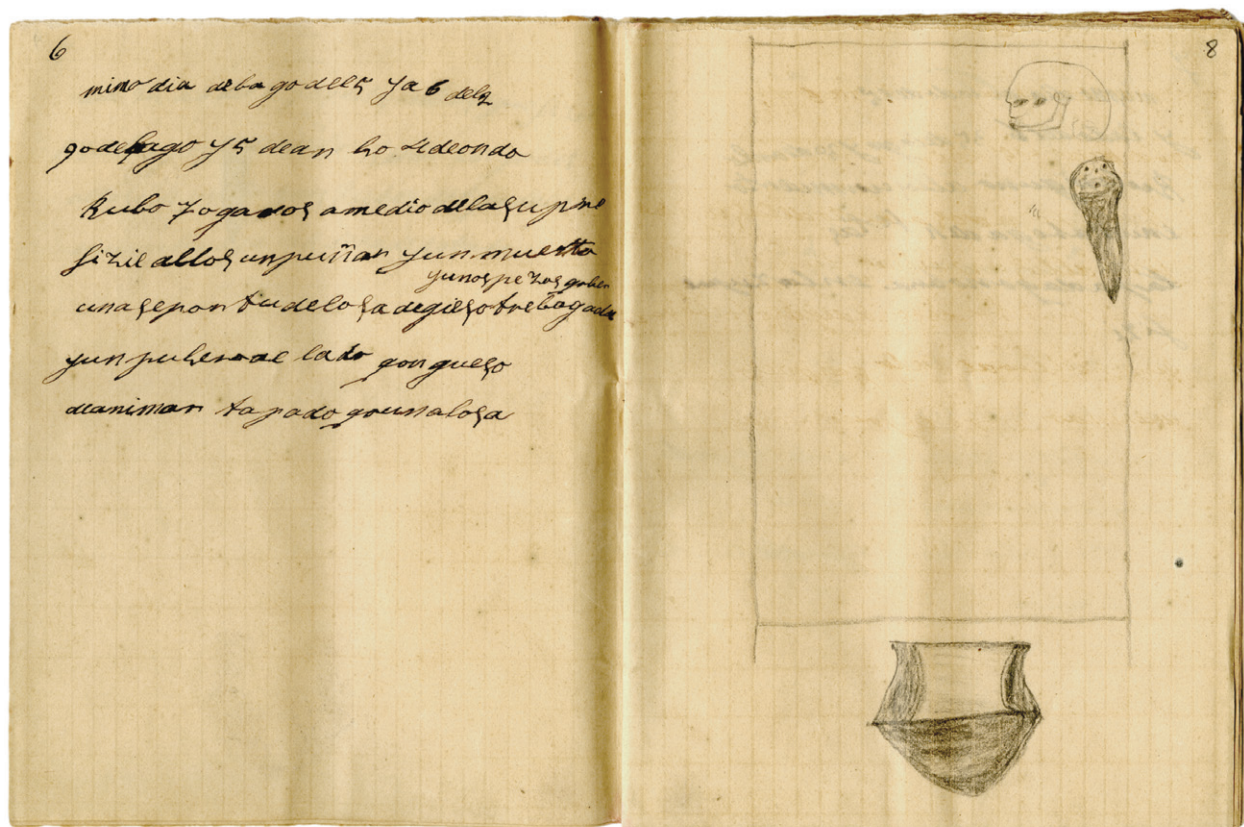 6
mimo dia debago del 5 ya 6 del2
godelargo y 5 dean ho 4 deondo
kubo 7 oganos amedio delasupine
fizie allos unpuñar yun muerto
yunospezos gober
unaseportudelosa degieso trebagada
yun puhero al lado gongueso
deanimar tapado gonunalosa
8